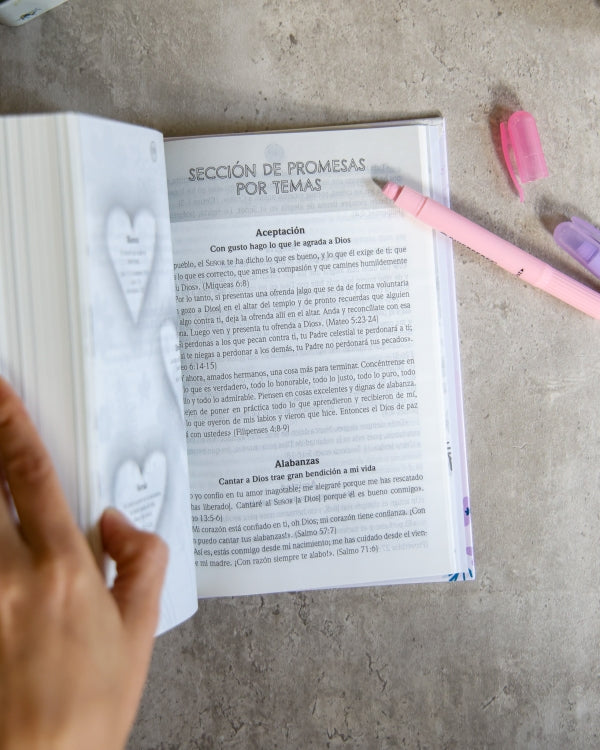 SECCIÓN DE PROMESAS
POR TEMAS
Aceptación
Con gusto hago lo que le agrada a Dios
pueblo, el SEÑOR te ha dicho lo que es bueno, y lo que él exige de ti: que
lo que es correcto, que ames la compasión y que camines humildemente
Dios». (Miqueas 6:8)
Por lo tanto, si presentas una ofrenda [algo que se da de forma voluntaria
gozo a Dios] en el altar del templo y de pronto recuerdas que alguien
algo contra ti, deja la ofrenda allí en el altar. Anda y reconcilíate con esa
na. Luego ven y presenta tu ofrenda a Dios». (Mateo 5:23-24)
perdonas a los que pecan contra ti, tu Padre celestial te perdonará a ti;
te niegas a perdonar a los demás, tu Padre no perdonará tus pecados».
6:14-15)
ahora, amados hermanos, una cosa más para terminar. Concéntrense en
lo que es verdadero, todo lo honorable, todo lo justo, todo lo puro, todo
llo y todo lo admirable. Piensen en cosas excelentes y dignas de alabanza.
ejen de poner en práctica todo lo que aprendieron y recibieron de mí,
lo que oyeron de mis labios y vieron que hice. Entonces el Dios de paz
con ustedes» (Filipenses 4:8-9)
Alabanzas
Cantar a Dios trae gran bendición a mi vida
yo confío en tu amor inagotable; me alegraré porque me has rescatado
has liberado]. Cantaré al SEÑOR [a Dios] porque él es bueno conmigo».
13:5-6)
Mi corazón está confiado en ti, oh Dios; mi corazón tiene confianza. ¡Con
puedo cantar tus alabanzas!». (Salmo 57:7)
Así es, estás conmigo desde mi nacimiento; me has cuidado desde el vien-
e mi madre. ¡Con razón siempre te alabo!». (Salmo 71:6)